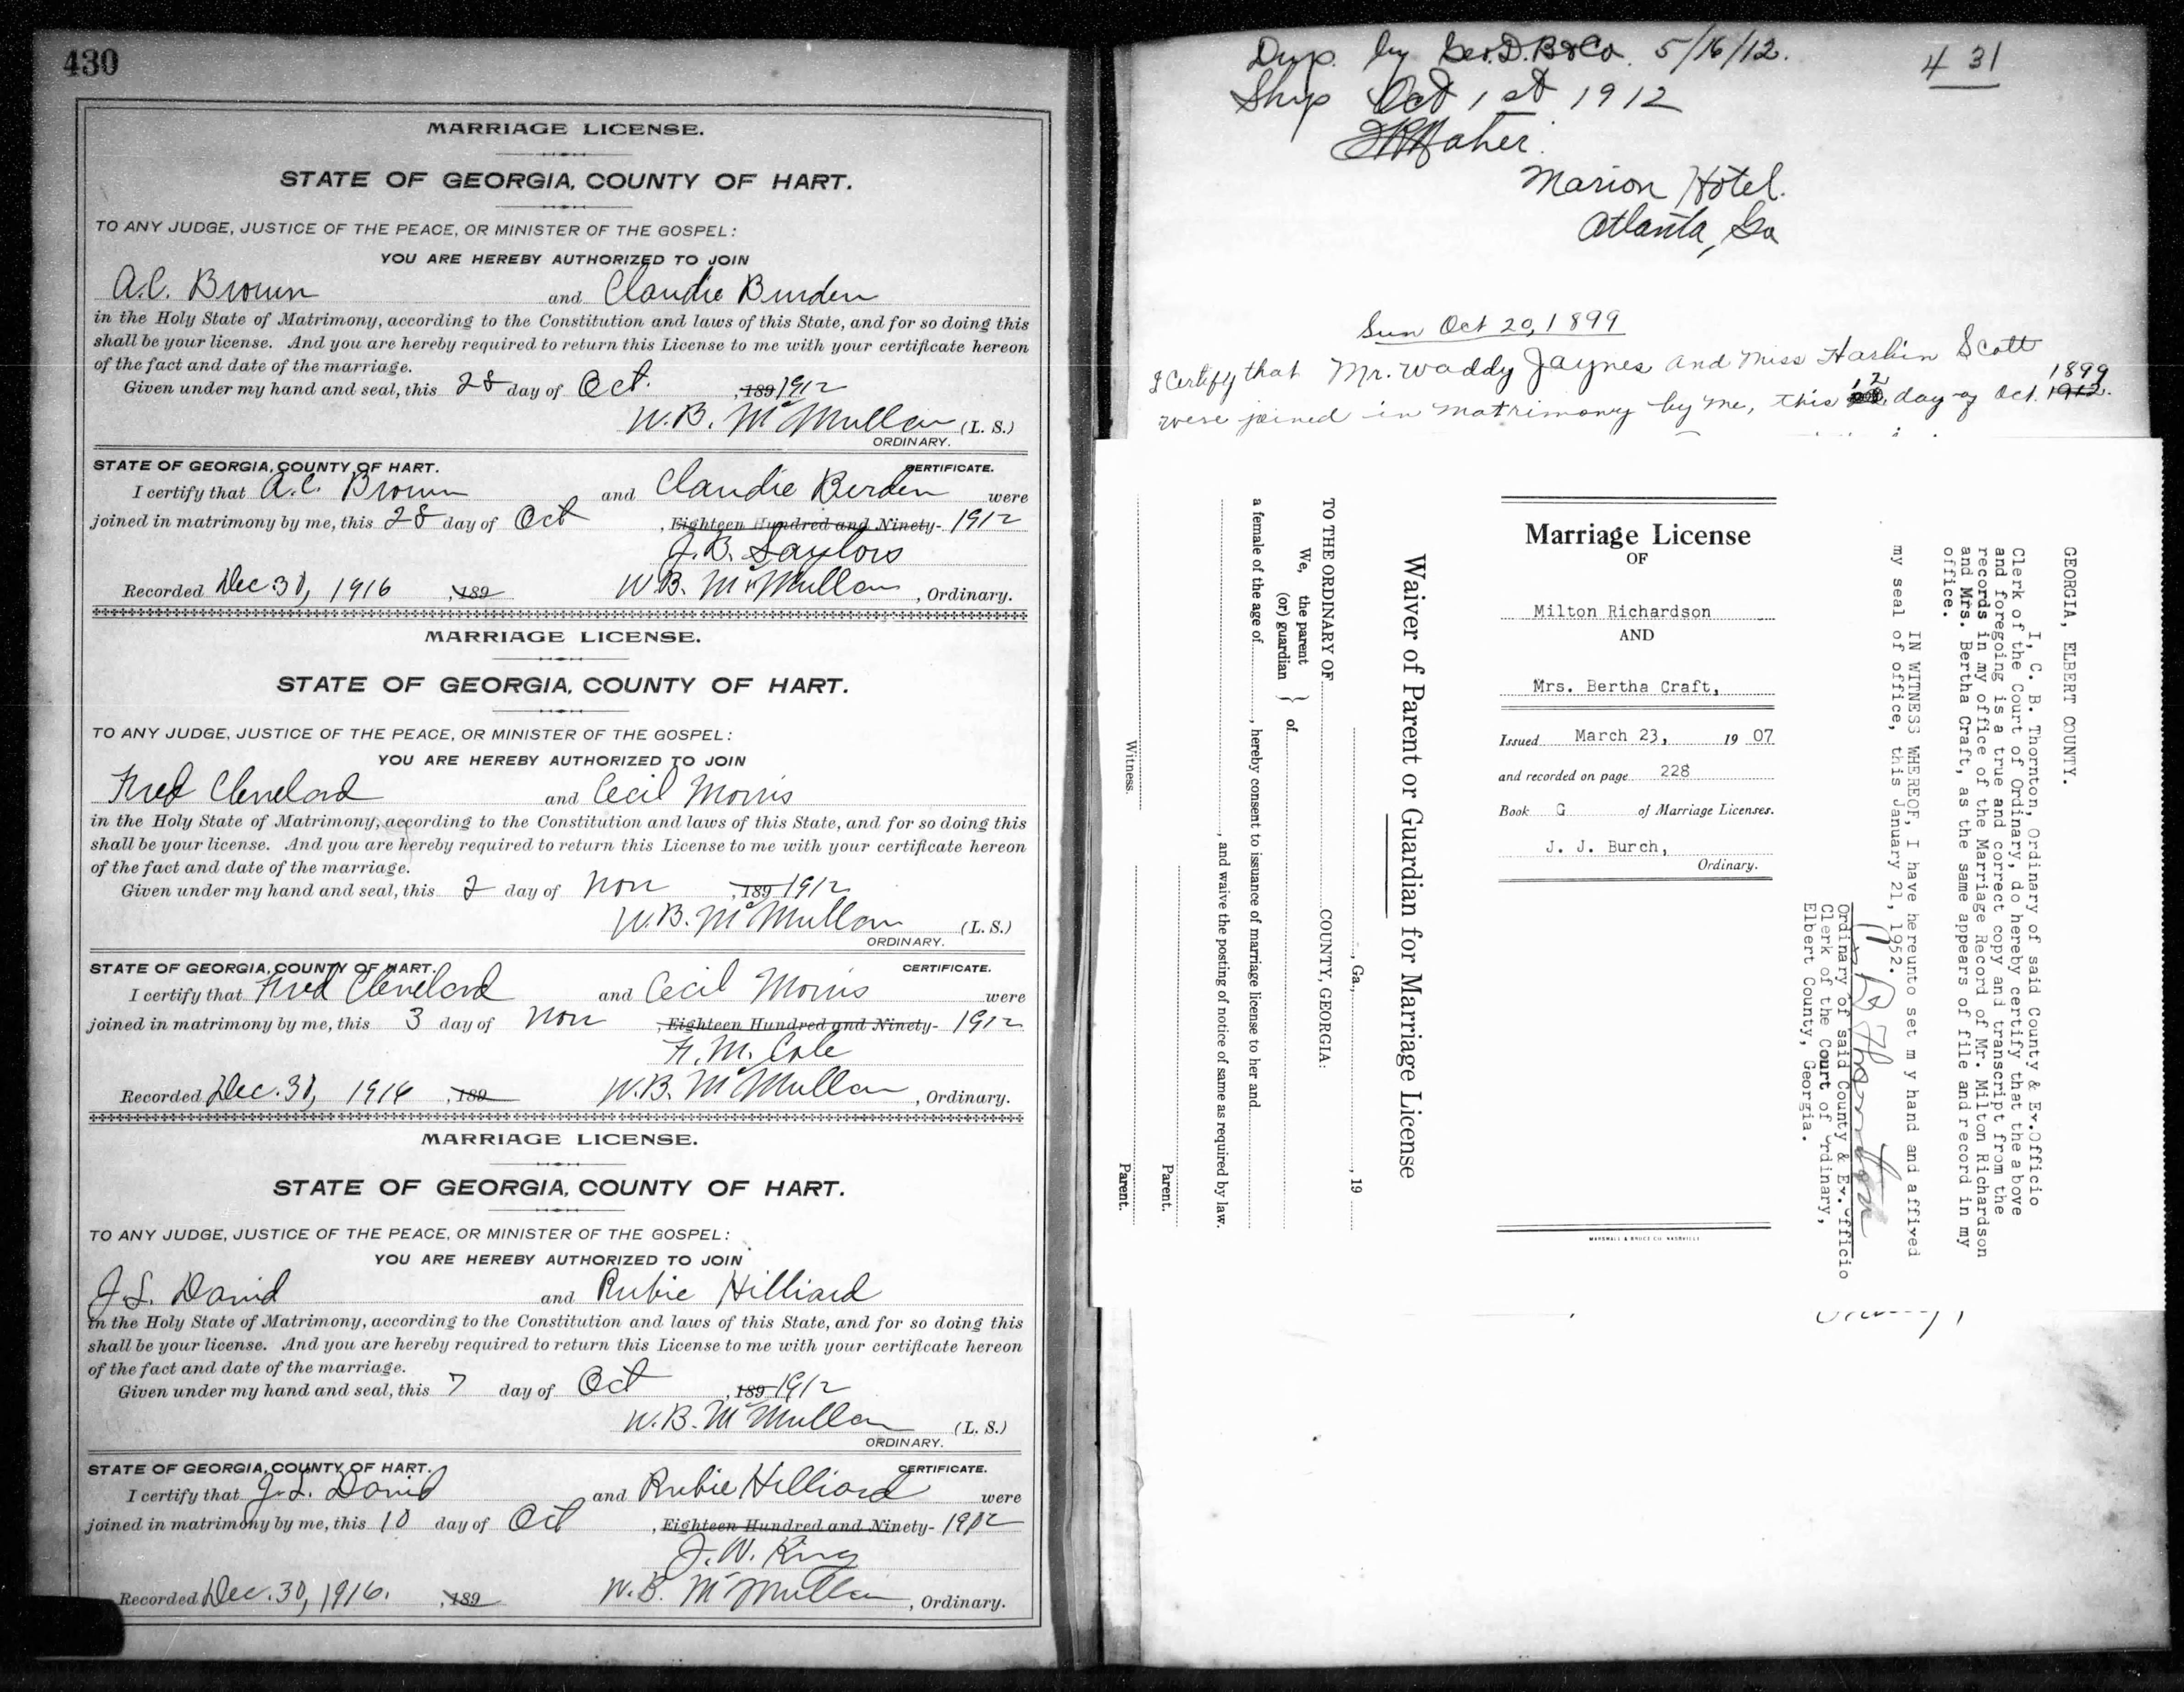 430
MARRIAGE LICENSE.
STATE OF GEORGIA, COUNTY OF HART.
TO ANY JUDGE, JUSTICE OF THE PEACE, OR MINISTER OF THE GOSPEL:
YOU ARE HEREBY AUTHORIZED TO JOIN
A.C. Brown and Claudie Burden
in the Holy State of Matrimony, according to the Constitution and laws of this State, and for so doing this
shall be your license. And you are hereby required to return this License to me with your certificate hereon
of the fact and date of the marriage.
Given under my hand and seal, this 28 day of Oct. , 189 1912
W.B. McMullan (L. S.)
ORDINARY.
STATE OF GEORGIA, COUNTY OF HART. CERTIFICATE.
I certify that A.C. Brown and Claudie Berden were
joined in matrimony by me, this 28 day of Oct , Eighteen Hundred and Ninety- 1912
J.B. Saylors
Recorded Dec 30, 1916 , 189 W.B. McMullan , Ordinary.
MARRIAGE LICENSE.
STATE OF GEORGIA, COUNTY OF HART.
TO ANY JUDGE, JUSTICE OF THE PEACE, OR MINISTER OF THE GOSPEL:
YOU ARE HEREBY AUTHORIZED TO JOIN
Fred Cleveland and Cecil Morris
in the Holy State of Matrimony, according to the Constitution and laws of this State, and for so doing this
shall be your license. And you are hereby required to return this License to me with your certificate hereon
of the fact and date of the marriage.
Given under my hand and seal, this 2 day of Nov , 189 1912
W.B. McMullan (L. S.)
ORDINARY.
STATE OF GEORGIA, COUNTY OF HART. CERTIFICATE.
I certify that Fred Cleveland and Cecil Morris were
joined in matrimony by me, this 3 day of Nov , Eighteen Hundred and Ninety- 1912
F.M. Cole
Recorded Dec. 30, 1916 , 189 W.B. McMullan , Ordinary.
MARRIAGE LICENSE.
STATE OF GEORGIA, COUNTY OF HART.
TO ANY JUDGE, JUSTICE OF THE PEACE, OR MINISTER OF THE GOSPEL:
YOU ARE HEREBY AUTHORIZED TO JOIN
J.L. David and Rubie Hilliard
in the Holy State of Matrimony, according to the Constitution and laws of this State, and for so doing this
shall be your license. And you are hereby required to return this License to me with your certificate hereon
of the fact and date of the marriage.
Given under my hand and seal, this 7 day of Oct , 189 1912
W.B. McMullan (L. S.)
ORDINARY.
STATE OF GEORGIA, COUNTY OF HART. CERTIFICATE.
I certify that J.L. David and Rubie Hilliard were
joined in matrimony by me, this 10 day of Oct , Eighteen Hundred and Ninety- 1912
J.W. King
Recorded Dec. 30, 1916. , 189 W.B. McMullan , Ordinary.
431
Dup. by Geo.D.B&Co. 5/16/12.
Ship Oct 1st 1912
Marion Hotel.
Atlanta, Ga
Sun Oct 20, 1899
I Certify that Mr. Waddy Jaynes and Miss Haslin Scott
were joined in matrimony by me, this 12 day of Oct. 1912. 1899
Marriage License
OF
Milton Richardson
AND
Mrs. Bertha Craft,
Issued March 23, 19 07
and recorded on page 228
Book G of Marriage Licenses.
J. J. Burch,
Ordinary.
MARSHALL & BRUCE CO. NASHVILLE
Waiver of Parent or Guardian for Marriage License
, Ga., , 19
TO THE ORDINARY OF COUNTY, GEORGIA:
We, the parent (or) guardian } of
a female of the age of , hereby consent to issuance of marriage license to her and
, and waive the posting of notice of same as required by law.
Parent.
Witness. Parent.
GEORGIA, ELBERT COUNTY.
I, C. B. Thornton, Ordinary of said County & Ex.Officio
Clerk of the Court of Ordinary, do hereby certify that the above
and foregoing is a true and correct copy and transcript from the
records in my office of the Marriage Record of Mr. Milton Richardson
and Mrs. Bertha Craft, as the same appears of file and record in my
office.
IN WITNESS WHEREOF, I have hereunto set m y hand and affixed
my seal of office, this January 21, 1952.
C B Thornton
Ordinary of said County & Ex.Officio
Clerk of the Court of Ordinary,
Elbert County, Georgia.